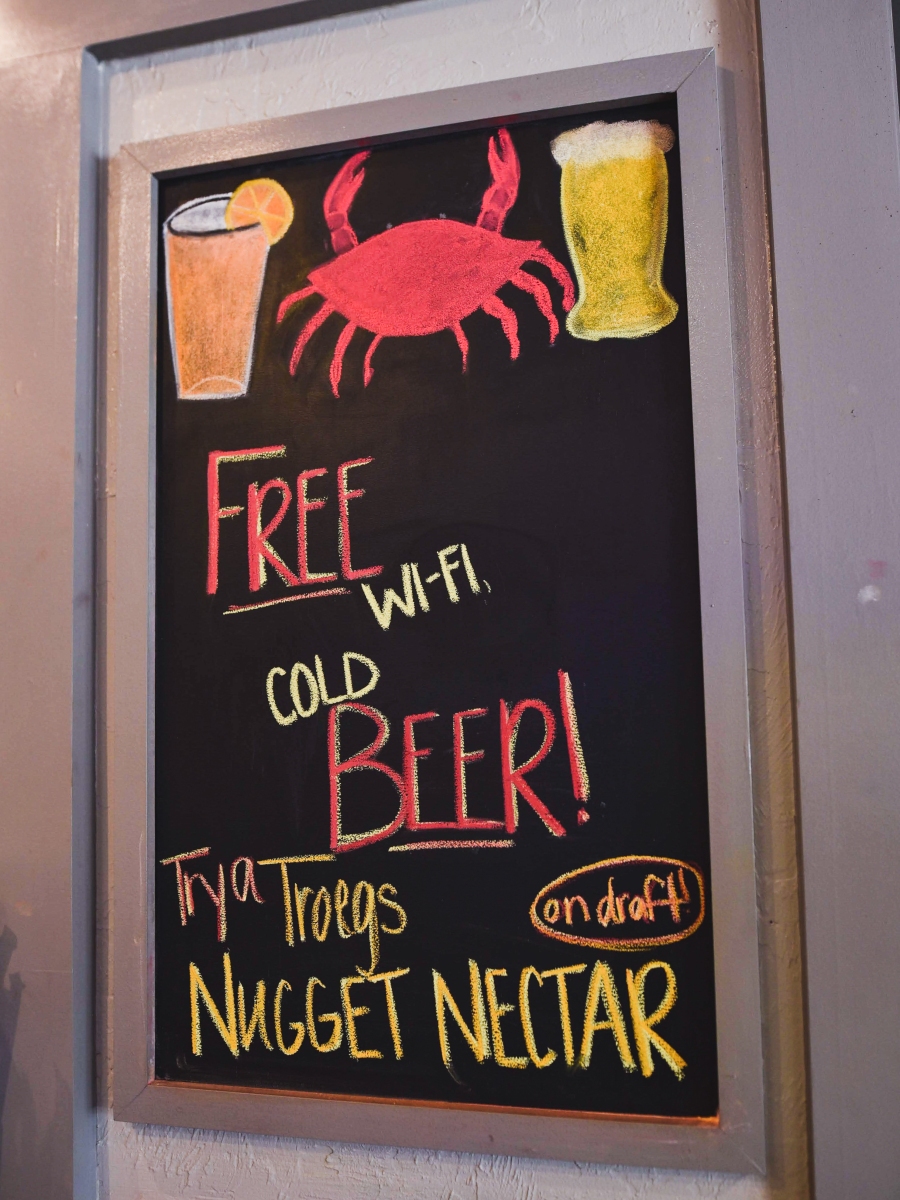 FREE
WI-FI,
COLD
BEER!
Try a Troegs
on draft!
NUGGET NECTAR